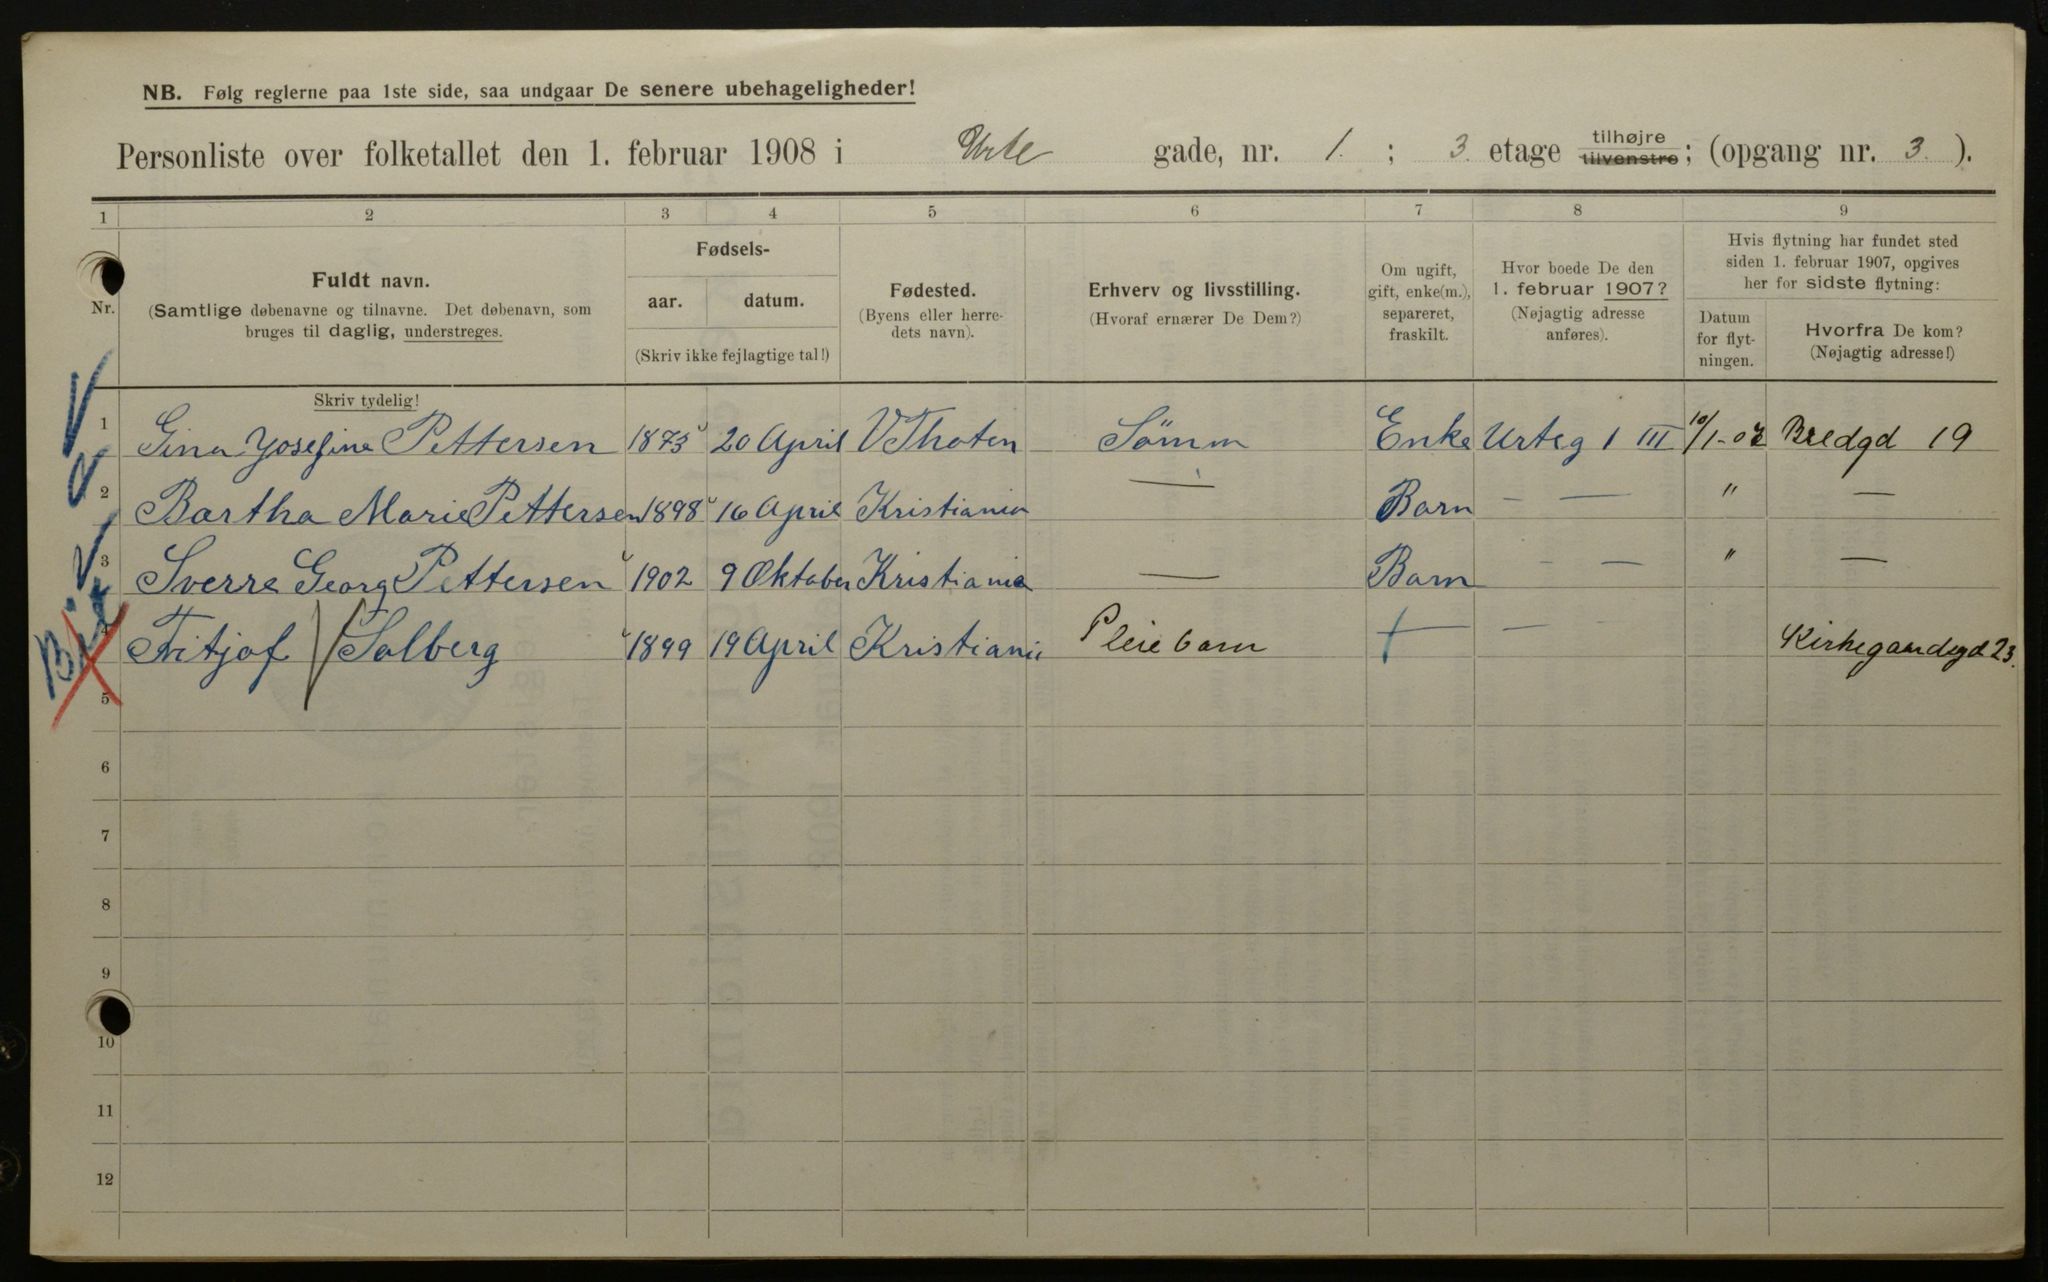 NB. Følg reglerne paa 1ste side, saa undgaar De senere ubehageligheder!
Personliste over folketallet den 1. februar 1908 i Urte gade, nr. 1. ; 3. etage tilhøjre tilvenstre; (opgang nr. 3. ).
1 2 3 4 5 6 7 8 9
Nr.
Fuldt navn.
(Samtlige døbenavne og tilnavne. Det døbenavn, som
bruges til daglig, understreges.
Skriv tydelig!
Fødsels-
aar. datum.
(Skriv ikke fejlagtige tal!)
Fødested.
(Byens eller herre-
dets navn).
Erhverv og livsstilling.
(Hvoraf ernærer De Dem?)
Om ugift,
gift, enke(m.),
separeret,
fraskilt.
Hvor boede De den
1. februar 1907?
(Nøjagtig adresse
anføres).
Hvis flytning har fundet sted
siden 1. februar 1907, opgives
her for sidste flytning:
Datum
for flyt-
ningen.
Hvorfra De kom?
(Nøjagtig adresse!)
1 Gina Josefine Pettersen 1873 20 April V Thoten Sömm Enke Urteg 1 III 10/1-07 Bredgd 19
2 Bartha Marie Pettersen 1898 16 April Kristiania — Barn — — " —
3 Sverre Georg Pettersen 1902 9 Oktober Kristiania — Barn - — " —
4 Fritjof Solberg 1899 19 April Kristiania Pleiebarn + — - Kirkegaardsgd 23.
5
6
7
8
9
10
11
12